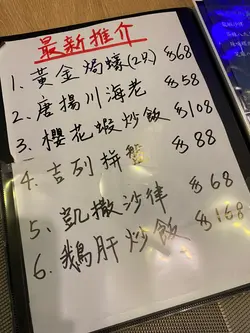 最新推介
1. 黃金焗蠔(2只) $68
2. 唐揚川海老 $58
3. 櫻花蝦炒飯 $108
4. 吉列拼盤 $88
5. 凱撒沙律 $68
6. 鵝肝炒飯 $168